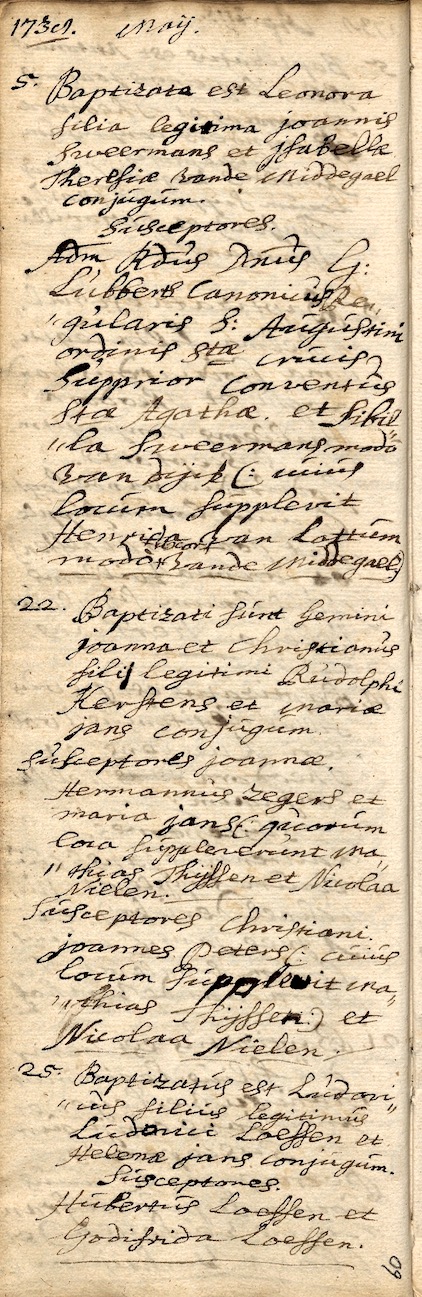 1739. Maij.
5. Baptizata est Leonora
filia legitima joannis
Sweermans et jsabellæ
Theresiæ vande Middegael
conjugum.
Susceptores.
Adm Rdus Dnus G:
Lubbers Canonicus Re„
„gularis S: Augustini
ordinis Stæ crucis
Supprior Conventus
Stæ Agathæ. et Sibil„
„la Sweermans modo
van dijck (: cuius
locum supplevit
Henrica van Lottum
modo vande Middegael)
22. Baptizati sunt gemini
joanna et Christianus
filij legitimi Rudolphi
Kerstens et Mariæ
jans conjugum.
Susceptores joannæ.
Hermannus Zegers et
maria jans (: quorum
loca suppleverunt Ma„
„thias Thijssen et Nicolaa
Nielen.
Susceptores Christiani.
joannes Peters (: cuius
locum supplevit Ma„
„thias Thijssen:) et
Nicolaa Nielen.
25. Baptizatus est Ludovi„
„cus filius legitimus
Ludovici Loeffen et
Helenæ jans conjugum.
Susceptores.
Hubertus Loeffen et
Godifrida Loeffen.
60